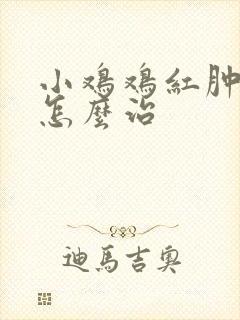 小鸡鸡紅肿
怎麽治
迪馬吉奥